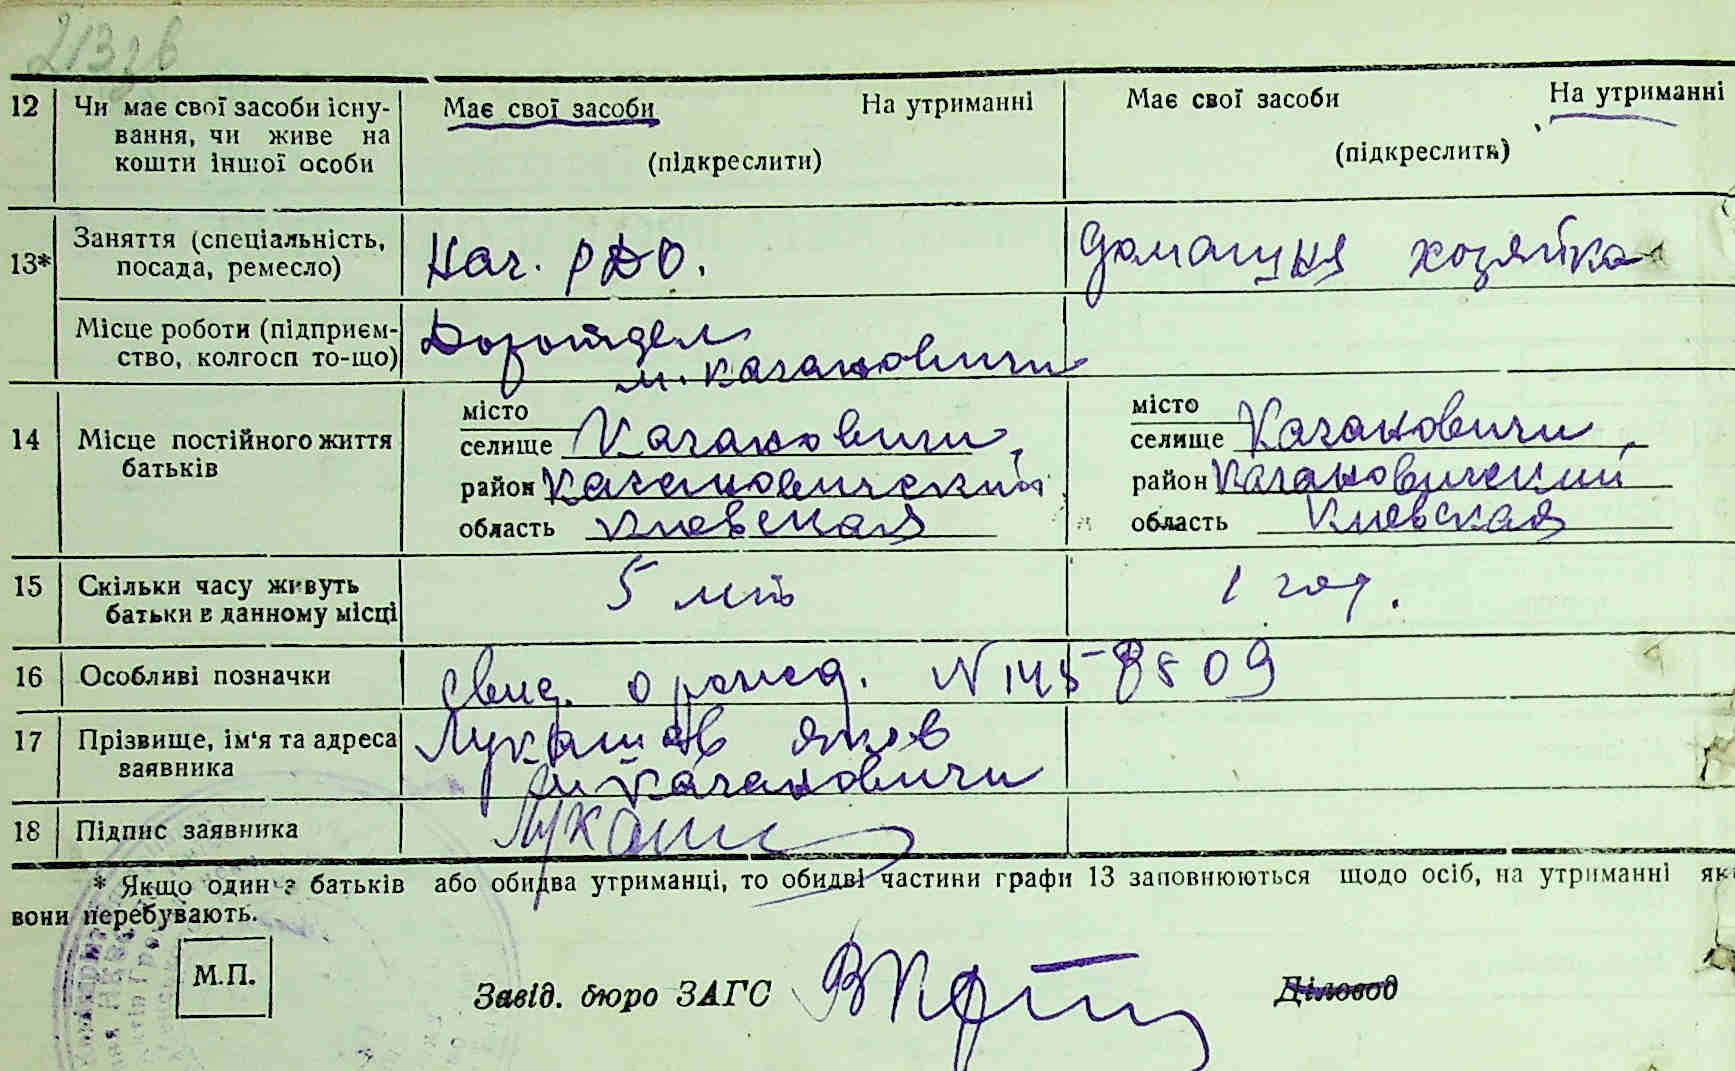 213зв
12 Чи має свої засоби існу- Має свої засоби На утриманні Має свої засоби На утриманні
вання, чи живе на
кошти іншої особи (підкреслити) (підкреслить)
13* Заняття (спеціальність, Нач. РДО. домашня хозяйка
посада, ремесло)
Місце роботи (підприєм- Доротдел
ство, колгосп то-що) м. Кагановичи
14 Місце постійного життя місто місто
батьків селище Кагановичи, селище Кагановичи,
район Кагановический район Кагановический
область Киевская область Киевская
15 Скільки часу живуть 5 міс 1 год.
батьки в данному місці
16 Особливі позначки Свид. о рожд. N 1458809
17 Прізвище, ім'я та адреса Лукашов Яков
заявника м Кагановичи
18 Підпис заявника Лукаш
* Якщо один з батьків або обидва утриманці, то обидві частини графи 13 заповнюються щодо осіб, на утриманні як
вони перебувають.
М.П. Завід. бюро ЗАГС Діловод